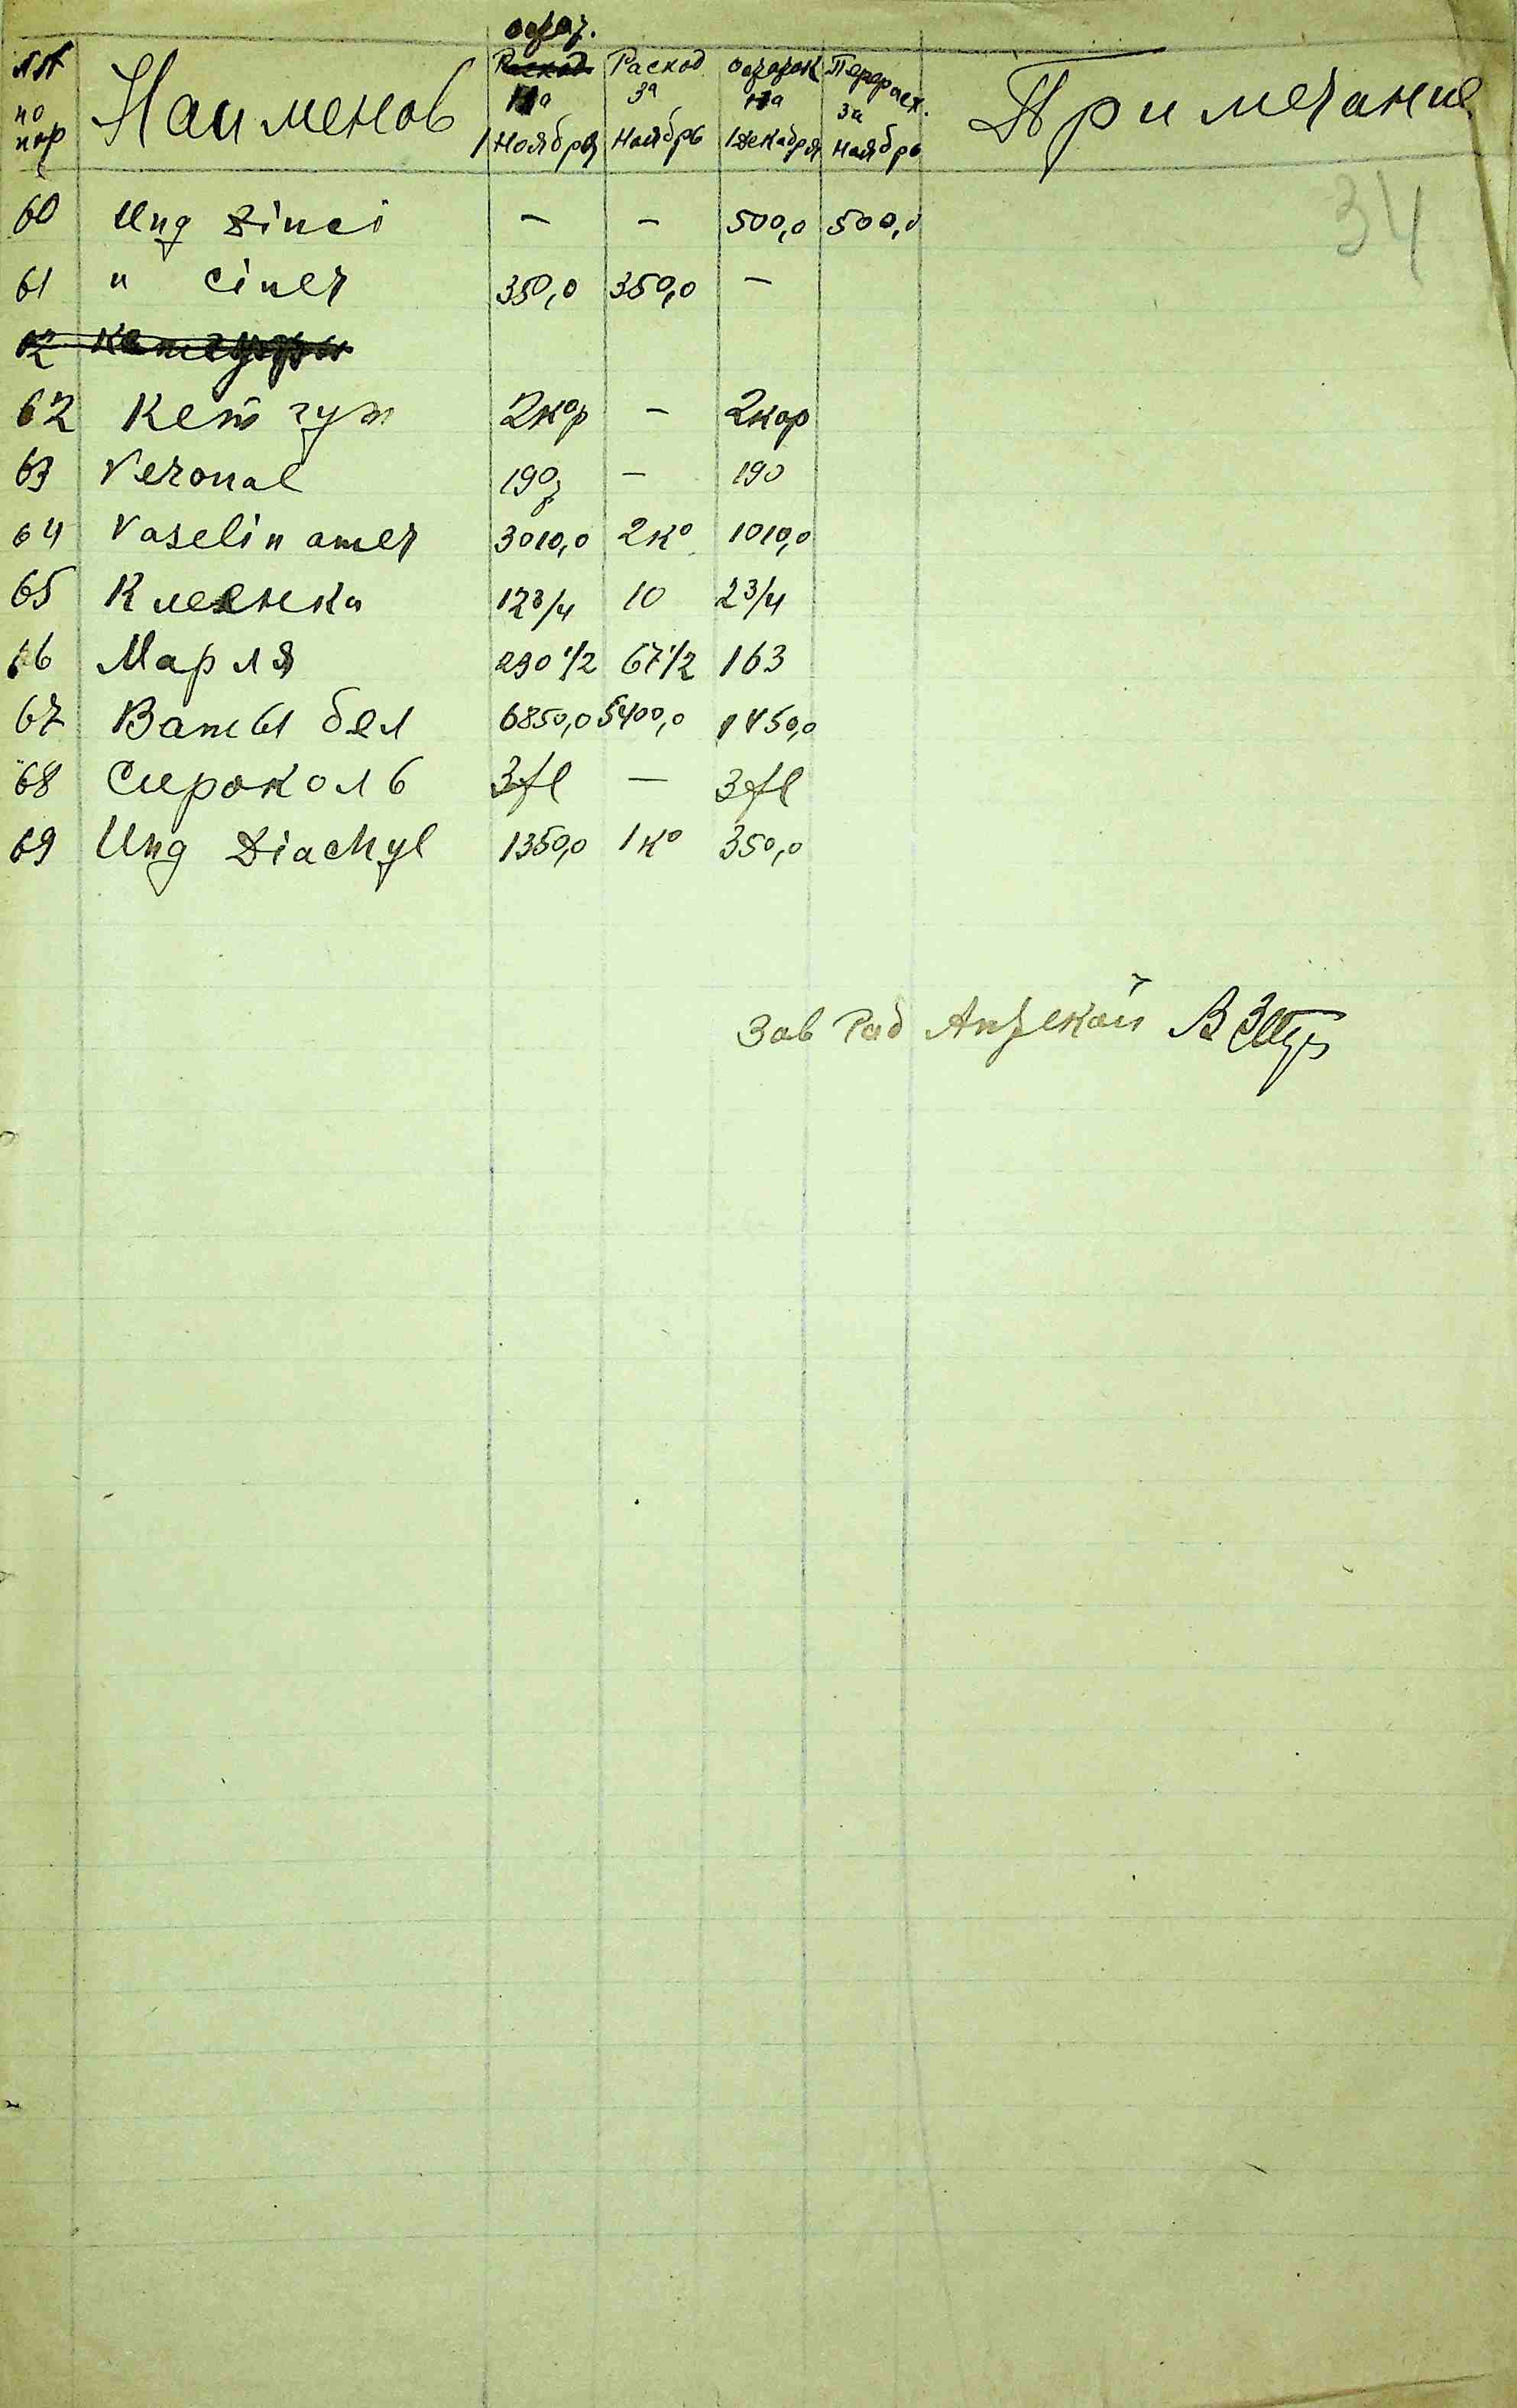 остат.
№№ по пор Наименов Расход На 1 Ноября Расход за Ноябрь Остаток На 1 Декабря Перерасх. за Ноябрь Примечание
34
60 Ung Zinci — — 500,0 500,0
61 " ciner 350,0 350,0 —
62
62 Кет гут 2 кор — 2 кор
63 Veronal 190 — 190
64 Vaselin amer 3010,0 2 ко 1010,0
65 Клеенка 12 3/4 10 2 3/4
66 Марля 230 1/2 67 1/2 163
67 Ваты бел 6850,0 5400,0 1450,0
68 Сироколь 3 fl — 3 fl
69 Ung Diachyl 1350,0 1 ко 350,0
Зав Рад Аптекой В